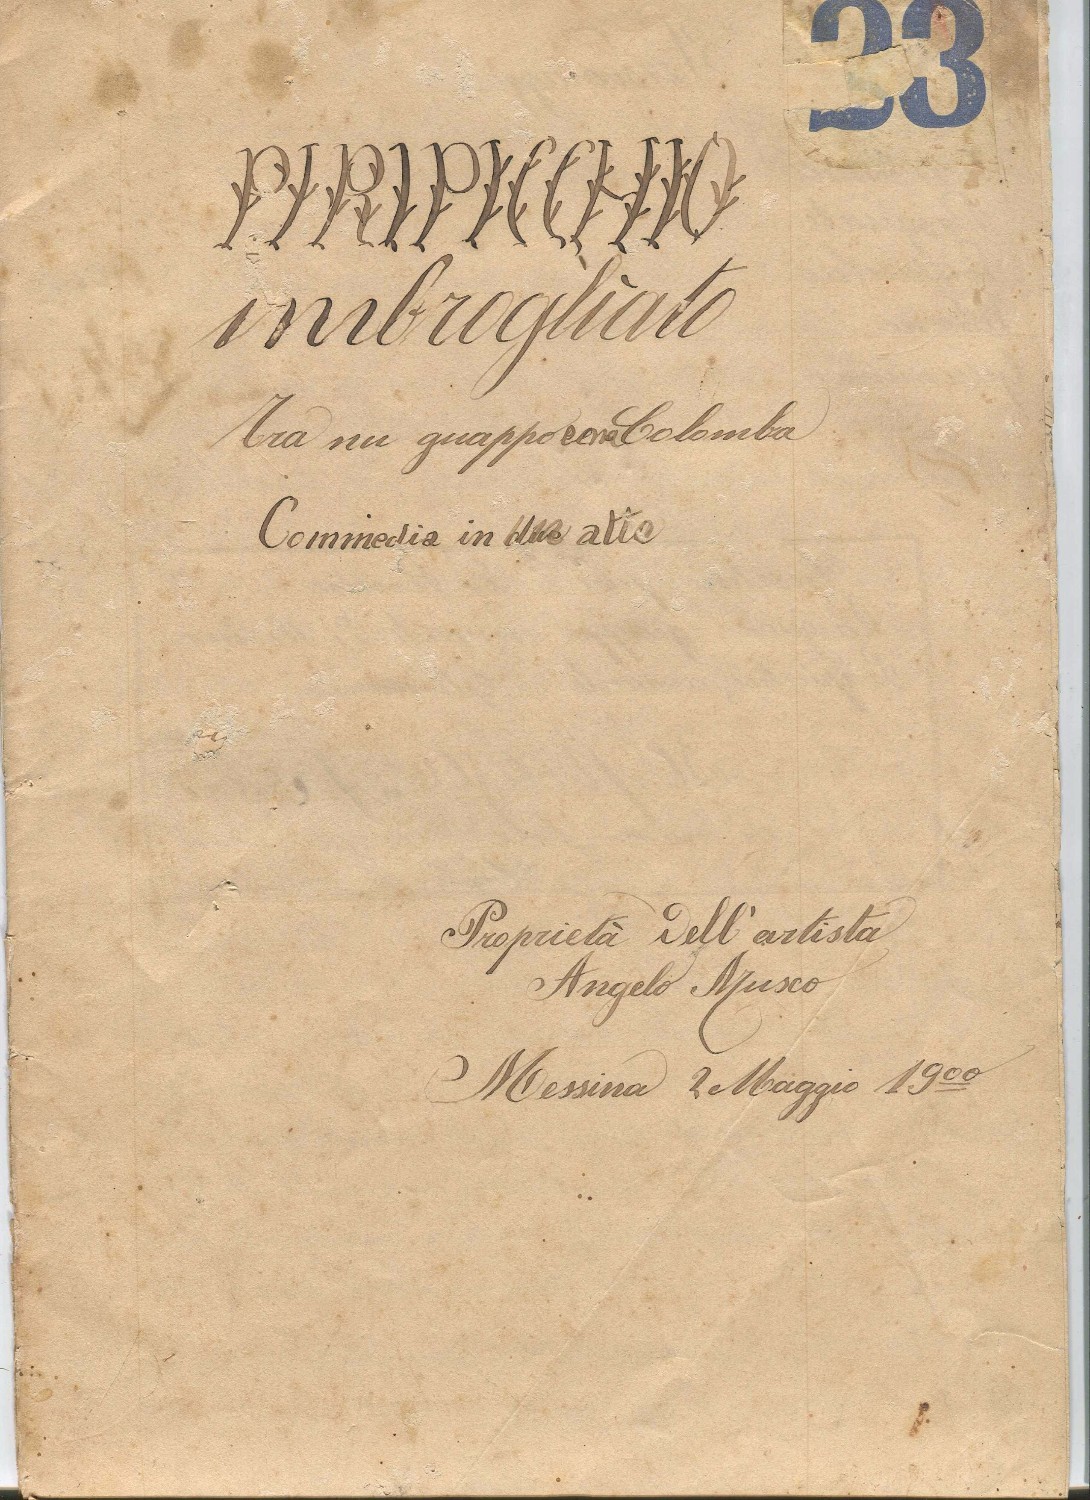 23
PIRIPICCHIO
imbrogliato
Tra nu guappo Colomba
Commedia in atto
Proprietà dell'artista
Angelo Musco
Messina 2 Maggio 1900